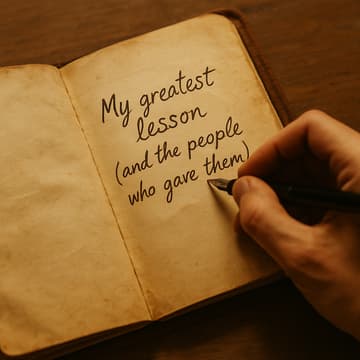 My greatest
lesson
(and the people
who gave them)